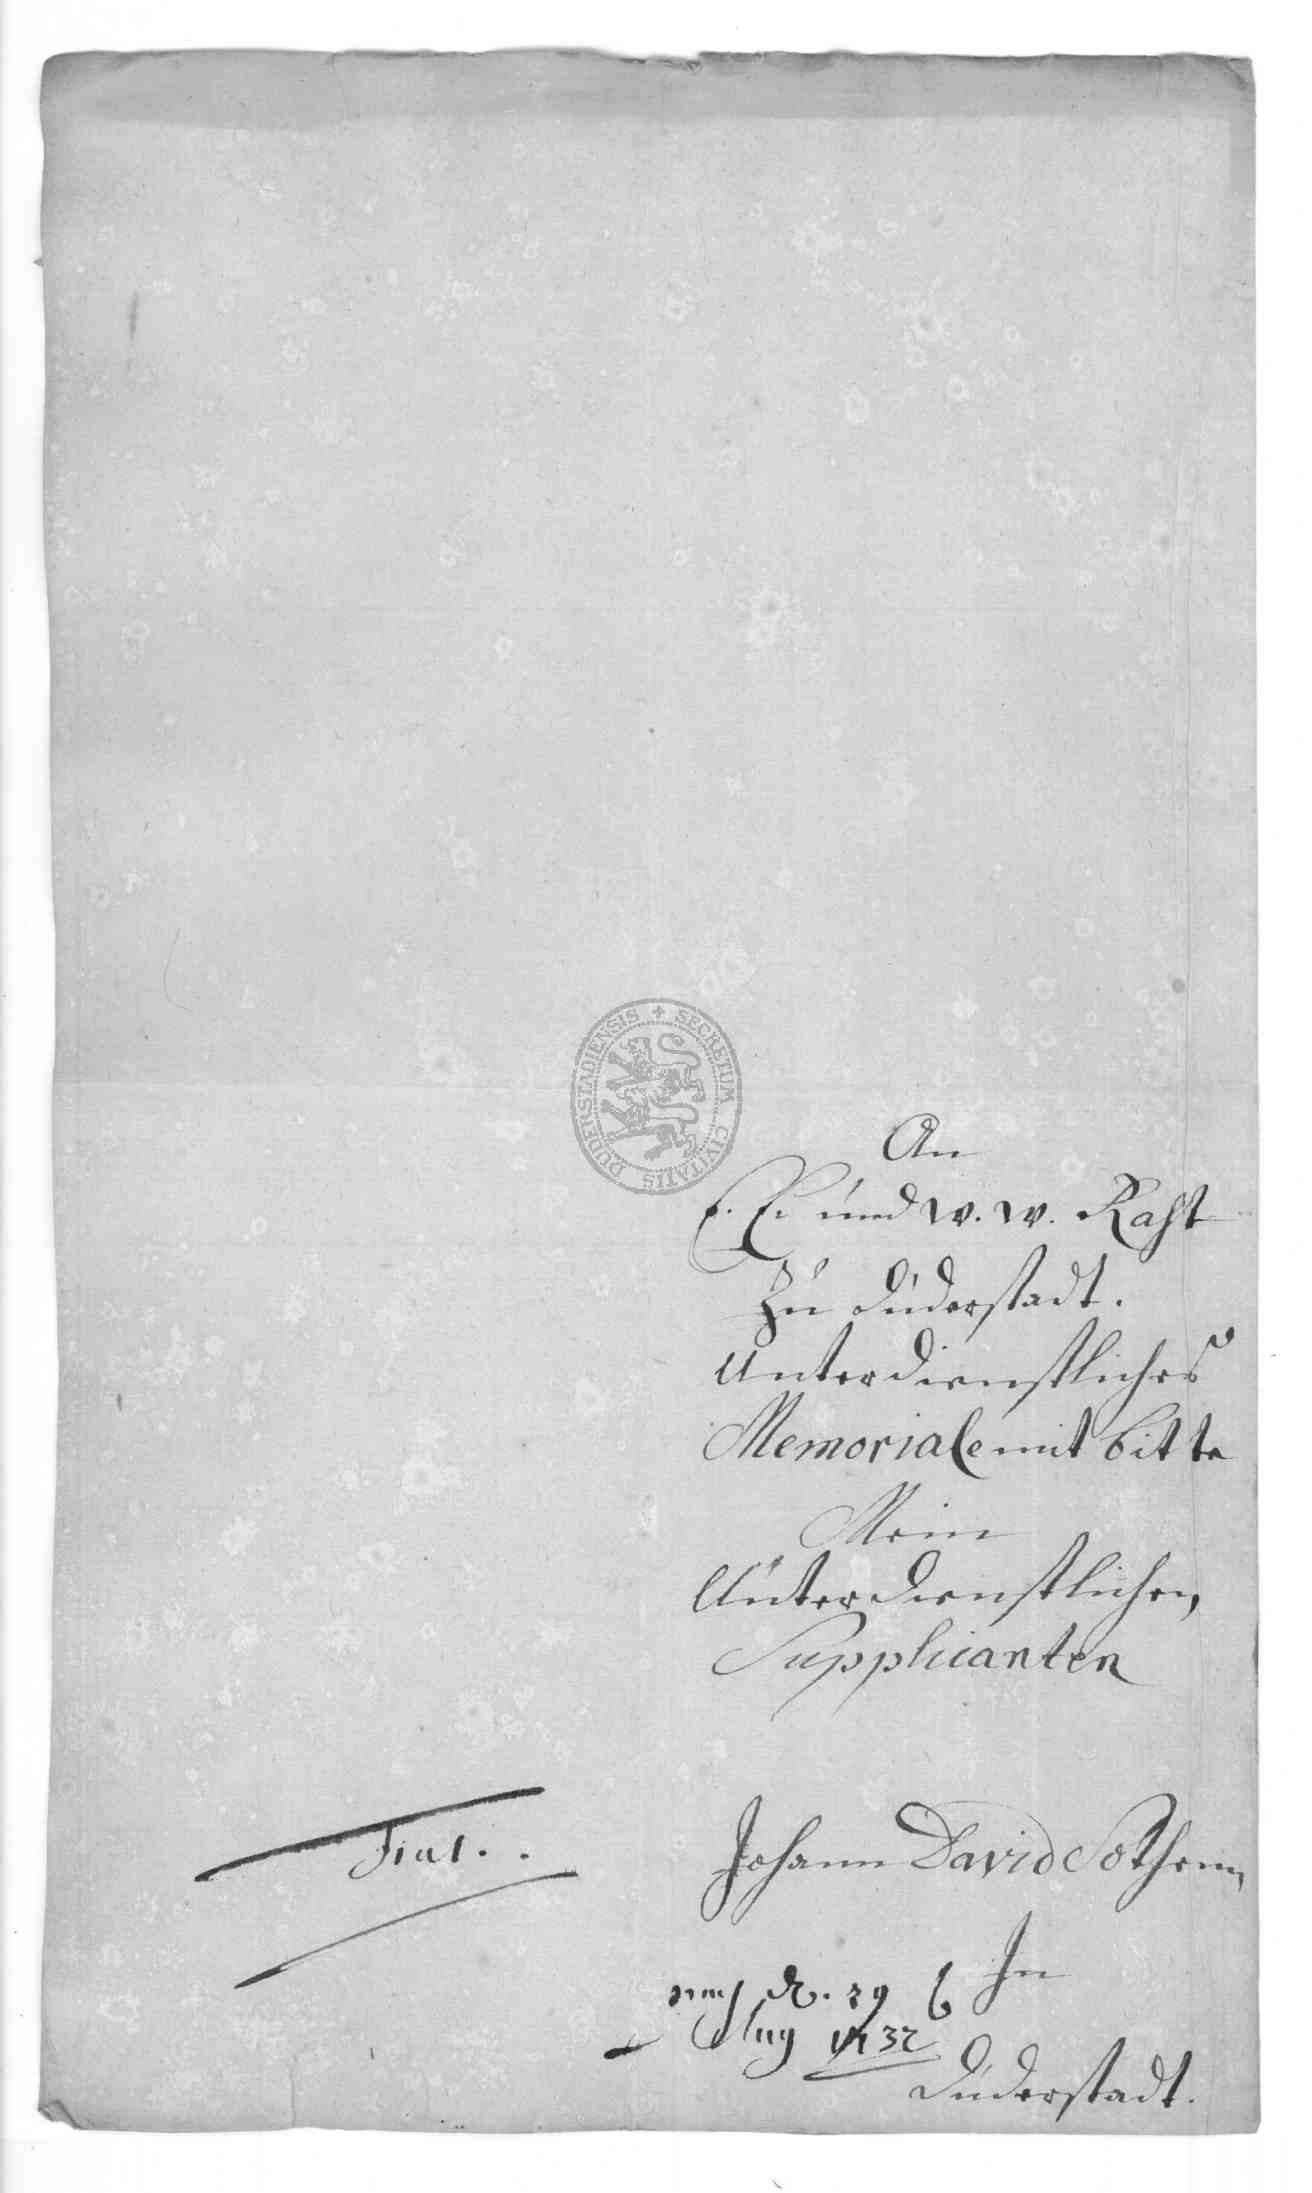 SECRETUM CIVITATIS DUDERSTADIENSIS
An
E. E. und w. w. Raht
Zu Duderstadt.
Unterdienstliches
Memoriale mit bitte
Mein
Unterdienstlichen
Supplicanten
Johann David Sothenn
In
Duderstadt.
Fiat.
d. 29
Aug 1732